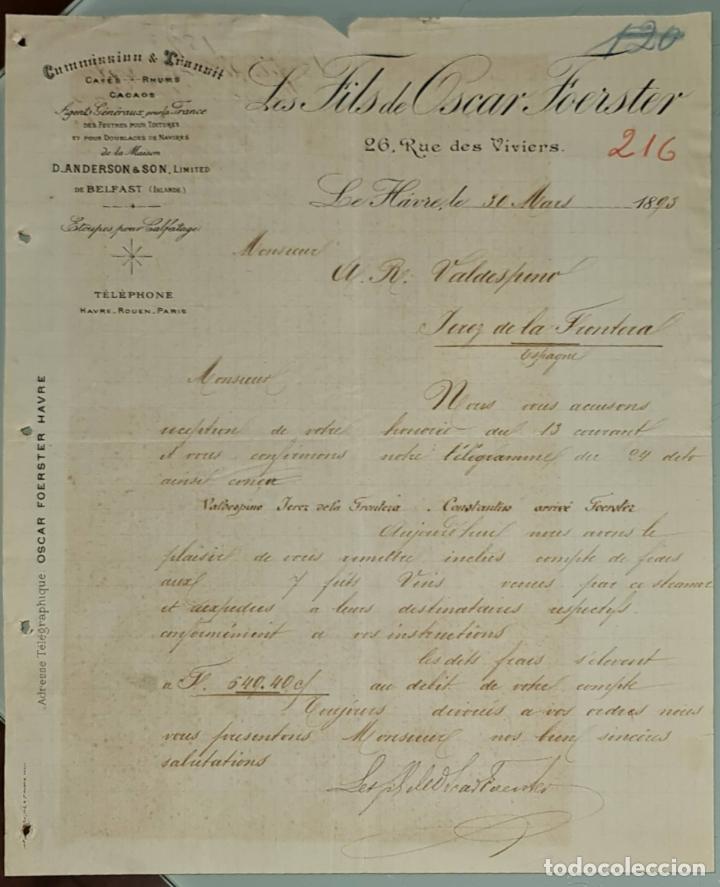 120
Commission & Transit
Cafés - Rhums
Cacaos
Agents Généraux pour la France
des Feutres pour Toitures
et pour Doublages de Navires
de la Maison
D. ANDERSON & SON, Limited
de BELFAST (Irlande)
Etoupes pour Calfatage
TÉLÉPHONE
Havre_Rouen_Paris
Les Fils de Oscar Foerster
26, Rue des Viviers.
216
Le Hâvre, le 30 Mars 1893
Monsieur
A. R. Valdespino
Jerez de la Frontera
Espagne
Monsieur
Nous vous accusons
reception de votre honorée du 13 courant
et vous confirmons notre télégramme du 24 dito
ainsi concu
Valdespino Jerez de la Frontera Constantin arrivé Foerster
Aujourd'hui nous avons le
plaisir de vous remettre inclus compte de frais
aux 7 fûts Vins venus par ce steamer
et expédiés à leurs destinataires respectifs
conformément à vos instructions
les dits frais s'elevent
à F. 640.40 au débit de votre compte
Toujours dévoués à vos ordres nous
vous présentons Monsieur nos bien sincères
salutations
Les Fils de Oscar Foerster
Adresse Télégraphique OSCAR FOERSTER HAVRE
todocoleccion